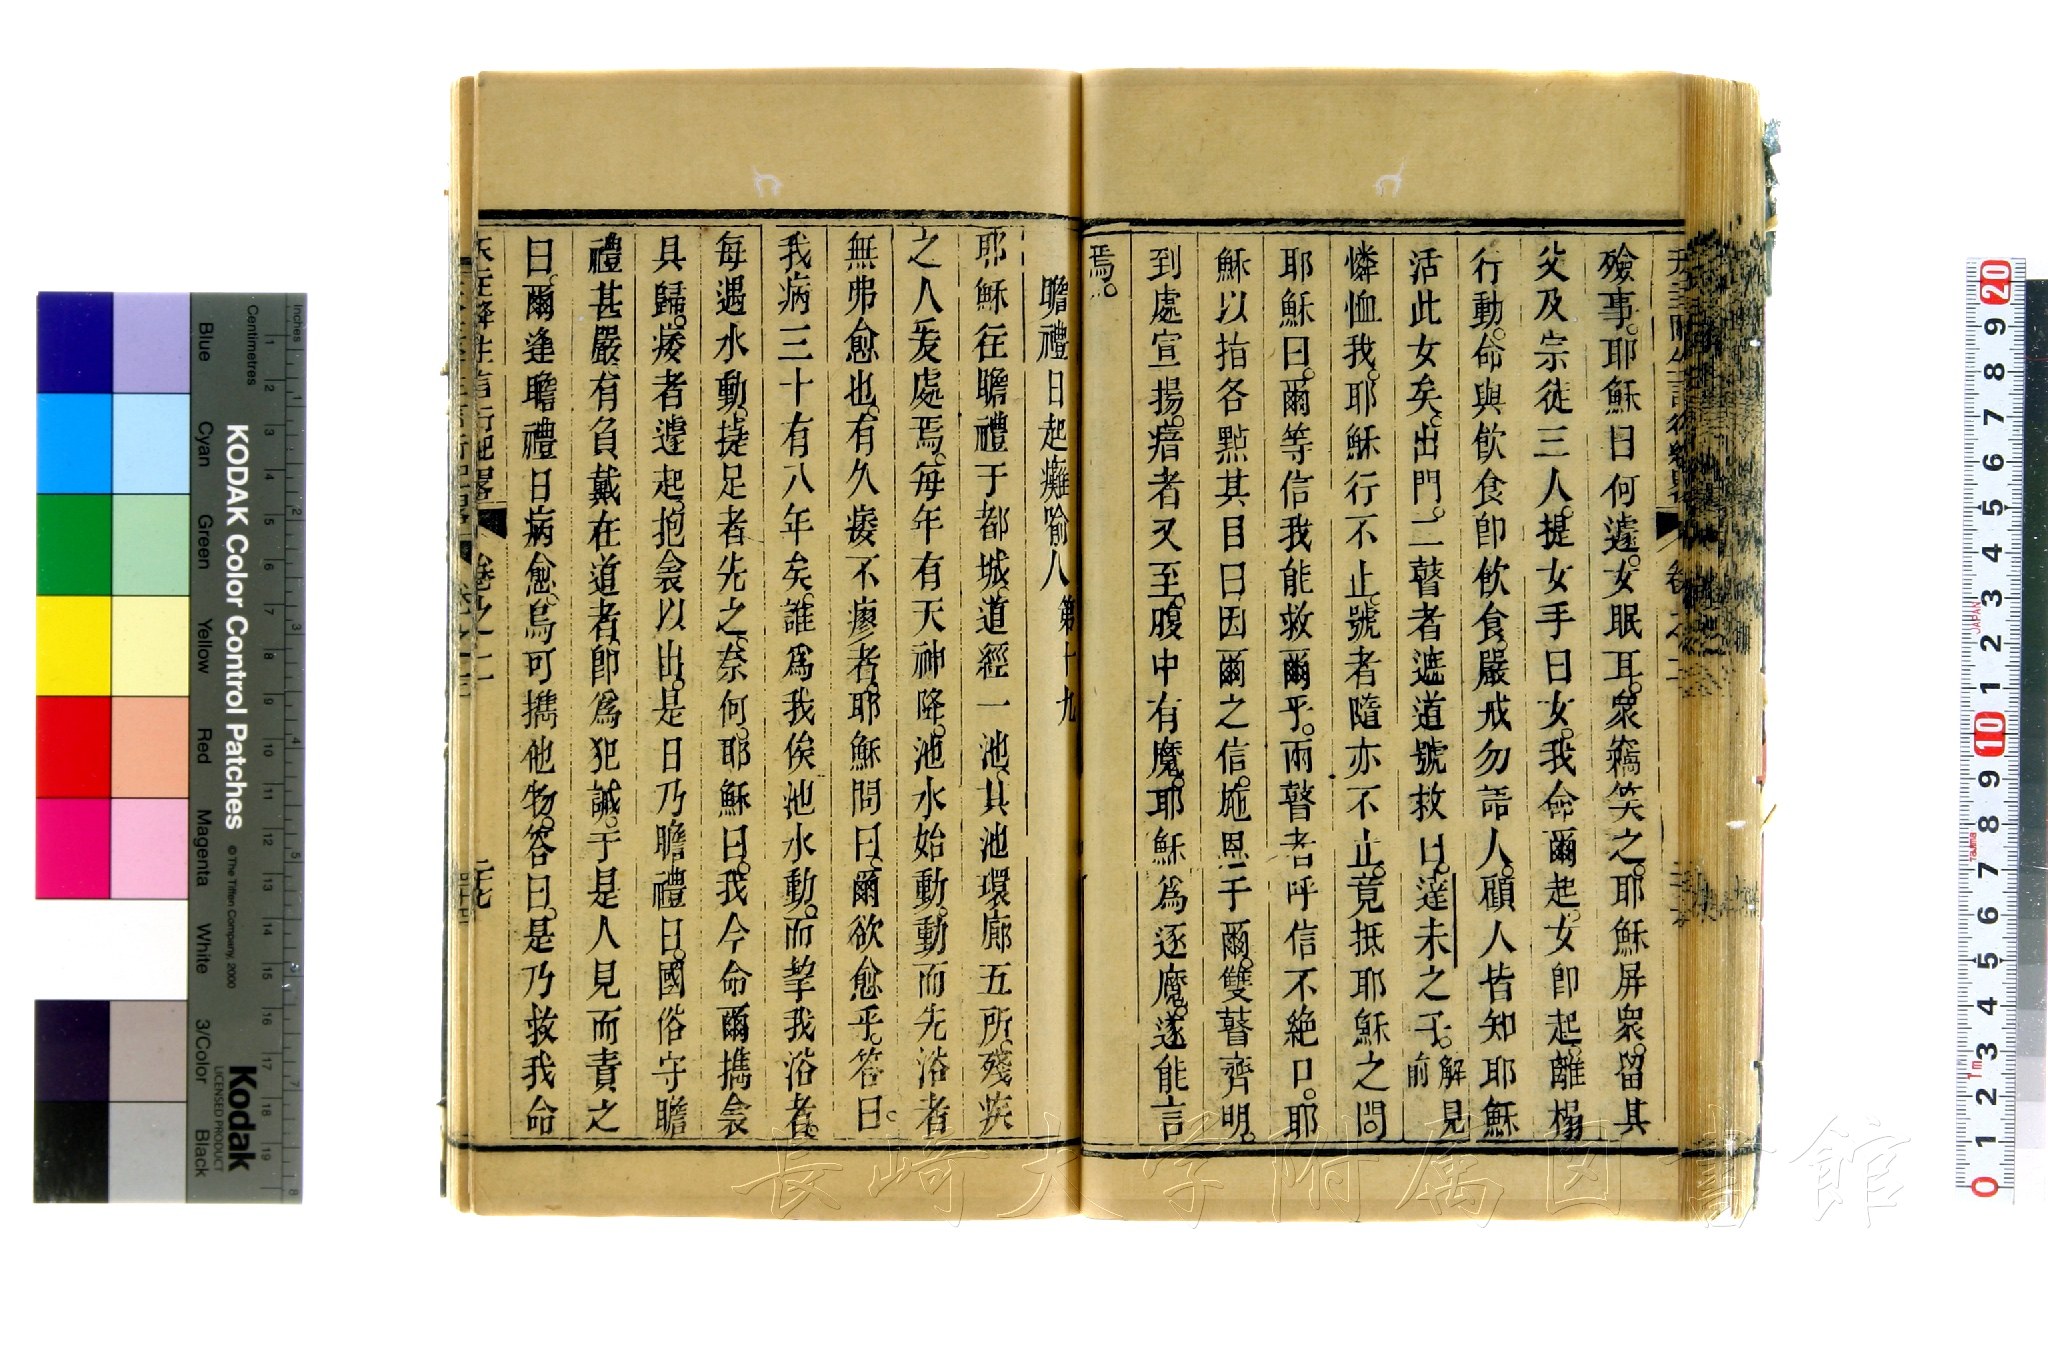 殮事。耶穌曰何遽。女眠耳。衆竊笑之。耶穌屏衆。留其
父及宗徒三人。提女手曰女。我命爾起。女卽起。離榻
行動。命與飮食卽飮食。嚴戒勿語人。顧人皆知耶穌
活此女矣。出門。二瞽者遮道號救曰。達未之子。解見前
憐恤我。耶穌行不止。號者隨亦不止。竟抵耶穌之問
耶穌曰。爾等信我能救爾乎。兩瞽者呼信不絶口。耶
穌以指各㸃其目曰因爾之信。施恩于爾。雙瞽齊明。
到處宣揚。瘖者又至。腹中有魔。耶穌爲逐魔。遂能言
焉。
瞻禮日起癱喻人 第十九
耶穌往瞻禮于都城道經一池。其池環廊五所。殘疾
之人爰處焉。每年有天神降。池水始動。動而先浴者
無弗愈也。有久痿不瘳者。耶穌問曰。爾欲愈乎。答曰。
我病三十有八年矣。誰爲我俟池水動。而挈我浴者。
每遇水動。捷足者先之。奈何。耶穌曰。我今命爾擕衾
具歸。痿者遽起。抱衾以出。是日乃瞻禮日。國俗守瞻
禮甚嚴。有負戴在道者。卽爲犯誡。于是人見而責之
曰。爾逢瞻禮日病愈。烏可擕他物。答曰。是乃救我命
天主降生言行紀畧 卷之二 二十七
長崎大学附属図書館
KODAK Color Control Patches
© The Tiffen Company, 2000
Kodak
LICENSED PRODUCT
Inches
Centimetres
Blue
Cyan
Green
Yellow
Red
Magenta
White
3/Color
Black